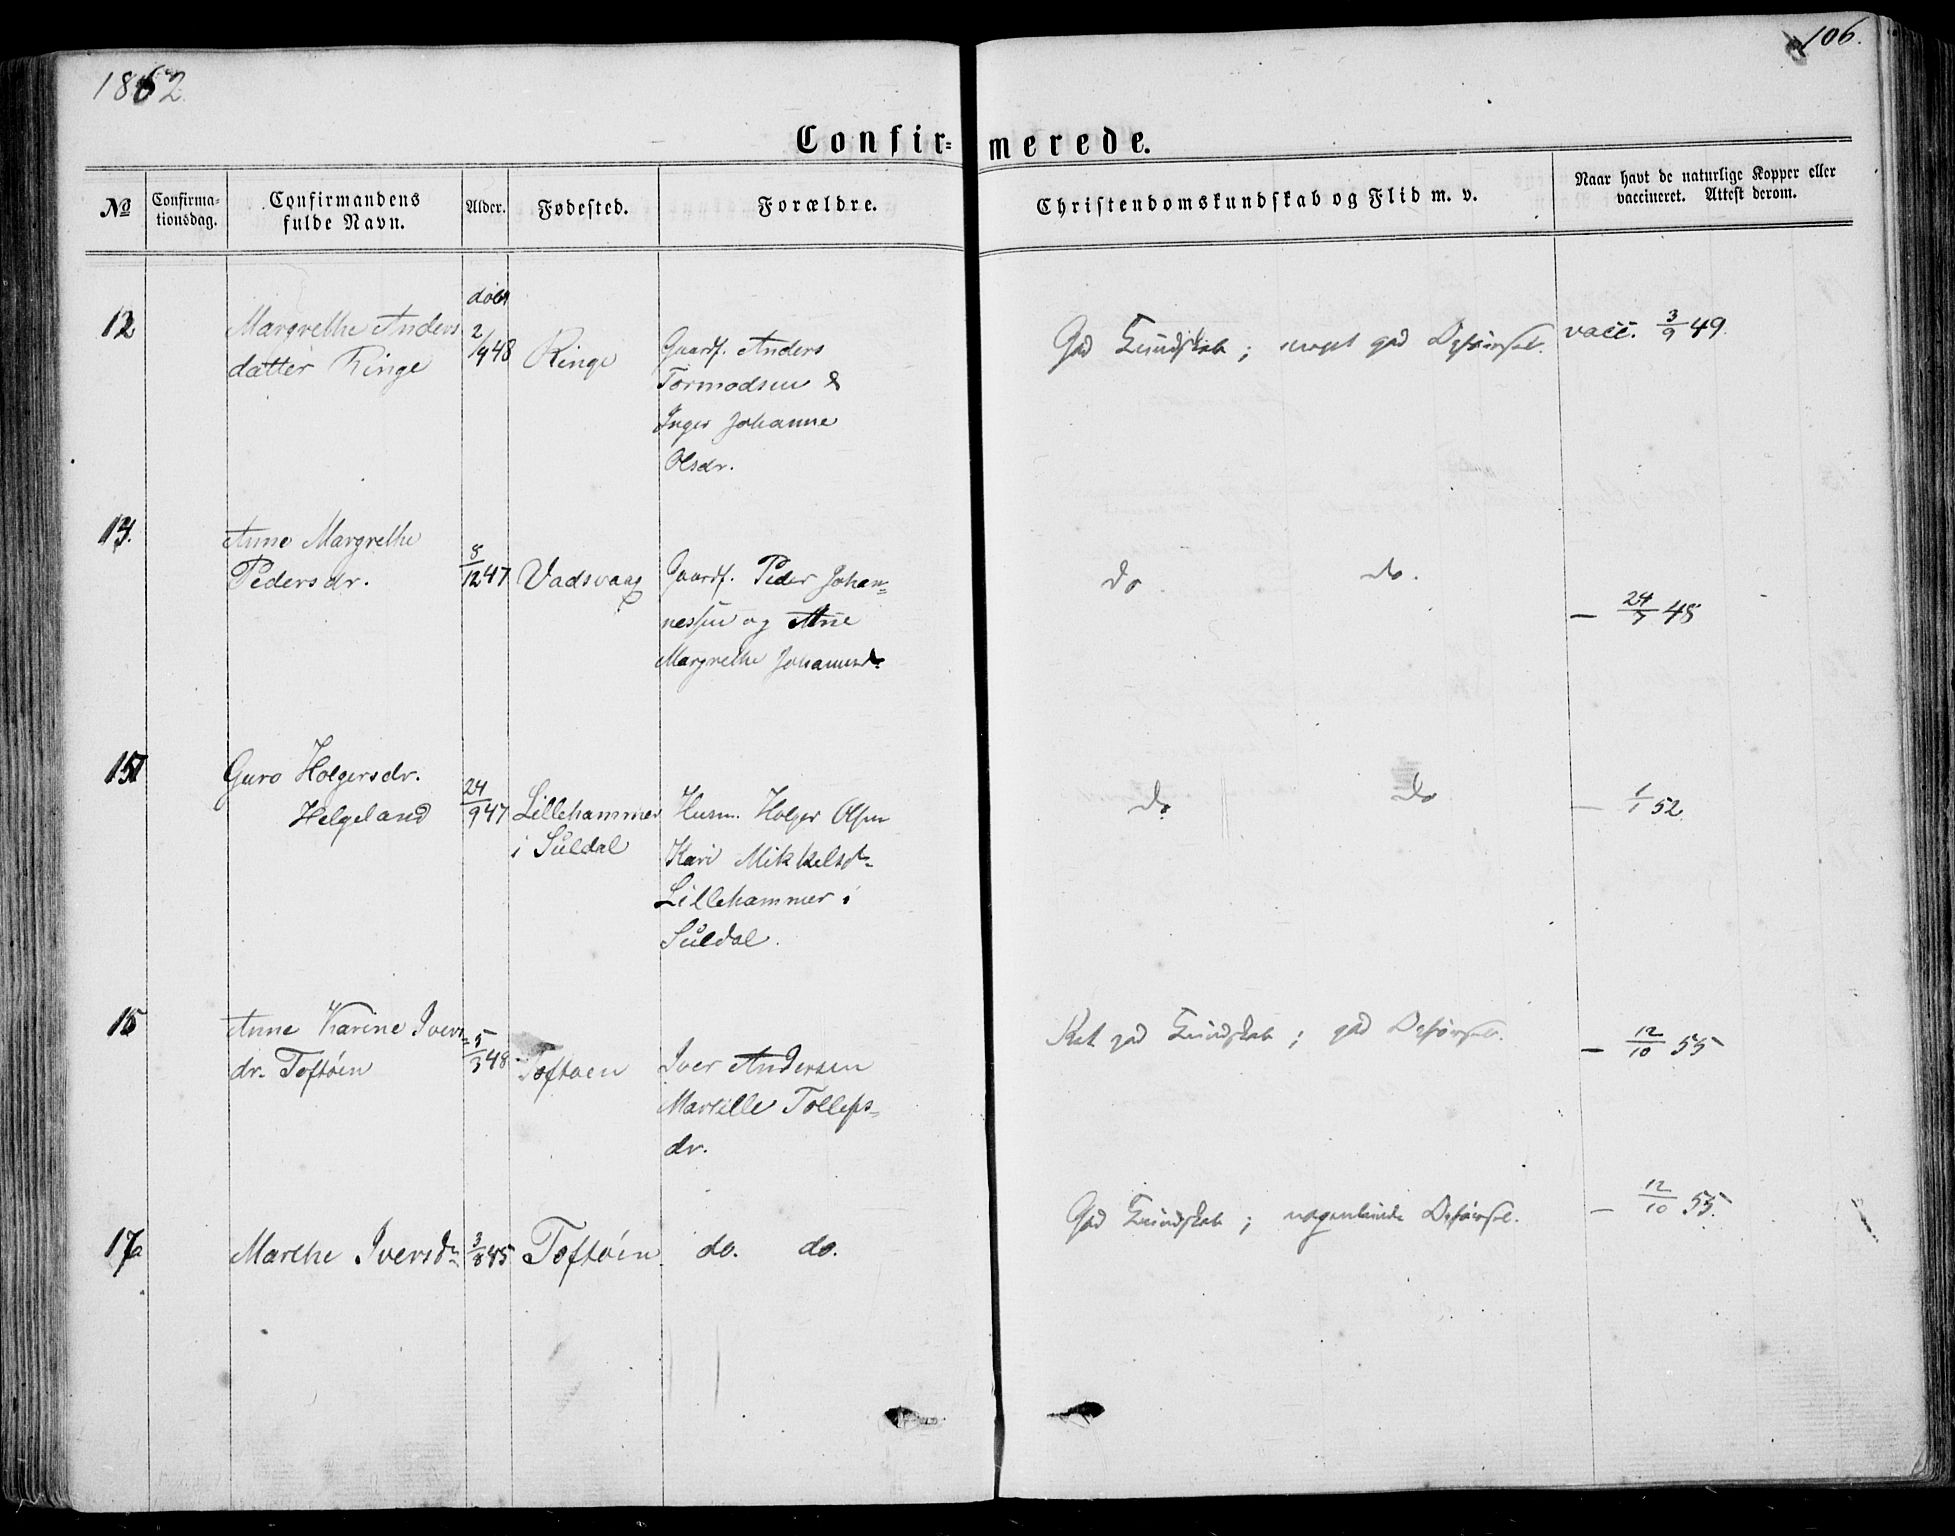 1862.
106.
Confir= merede.
No
Confirma-
tionsdag.
Confirmandens
fulde Navn.
Alder.
Fødested.
Forældre.
Christendomskundskab og Flid m. v.
Naar havt de naturlige Kopper eller
vaccineret. Attest derom.
12
Margrethe Anders
datter Ringe
døbt
2/9 48
Ringe
Gaardf. Anders
Tormodsen &
Inger Johanne
Olsdr.
God Kundskab; meget god Opførsel.
vacc. 3/9 49.
Anne Margrethe
Pedersdr.
8/12 47
Vadsvaag
Gaardf. Peder Johan=
nessen og Ane
Margrethe Johannsdr
do do.
— 24/5 48
Guro Holgersdr.
Helgeland
24/9 47
Lillehammer
i Suldal
Husm. Holger Olsen
Kari Mikkelsdr
Lillehammer i
Suldal.
do do
— 1/1 52
Anne Karine Ivers=
dr. Toftøen
5/3 48
Toftøen
Iver Andersen
Marthe Tollefs=
dr.
Ret god Kundskab; god Opførsel.
— 12/10 55
17
Marthe Iversdr
3/8 45
Toftøen.
do. do.
God Kundskab; nogenlunde Opførsel.
— 12/10 55.